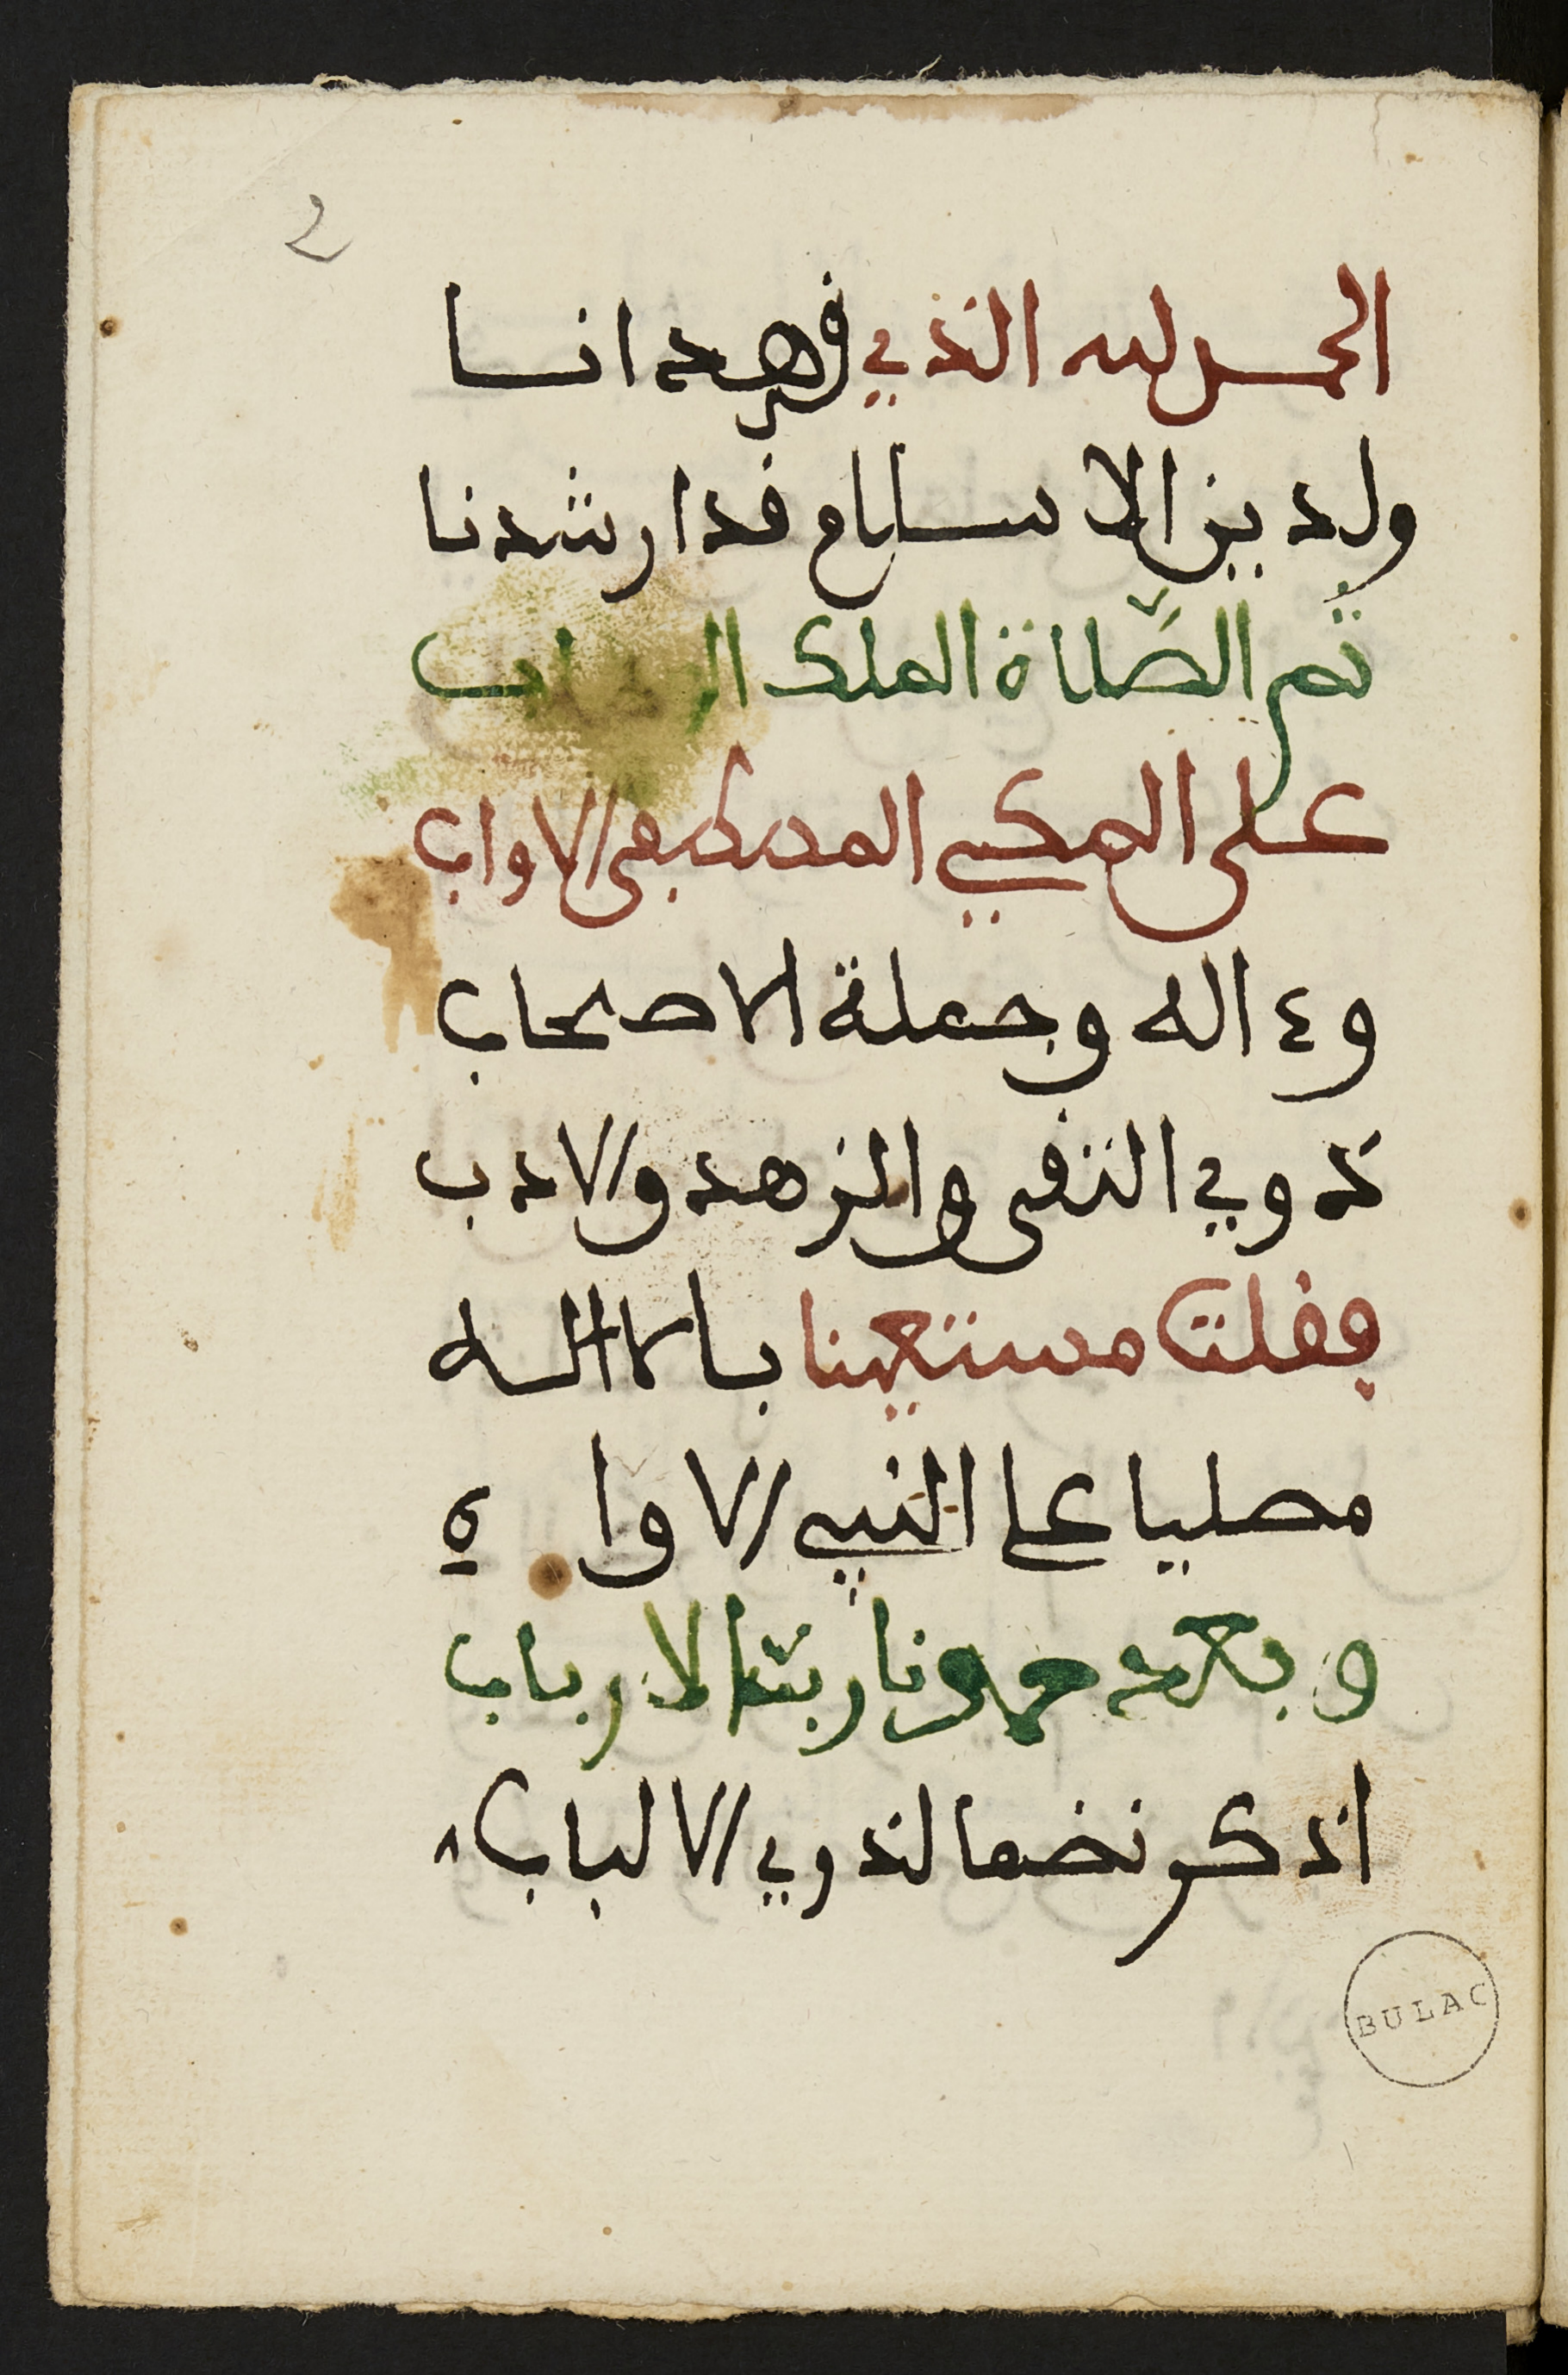 2
الحمد لله الذي قد هدانا
ولدين الاسلام قد ارشدنا
ثم الصّلاة الملك الوهاب
على المكي المصطفى الاواب
وء اله وجملة الاصحاب
ذوي التقى والزهد والادب
فقلت مستعينا بالالـه
مصليا على النبي الاواه
وبعد حمدنا ربّنا الارباب
اذكر نضما لذوي الالباب
BULAC